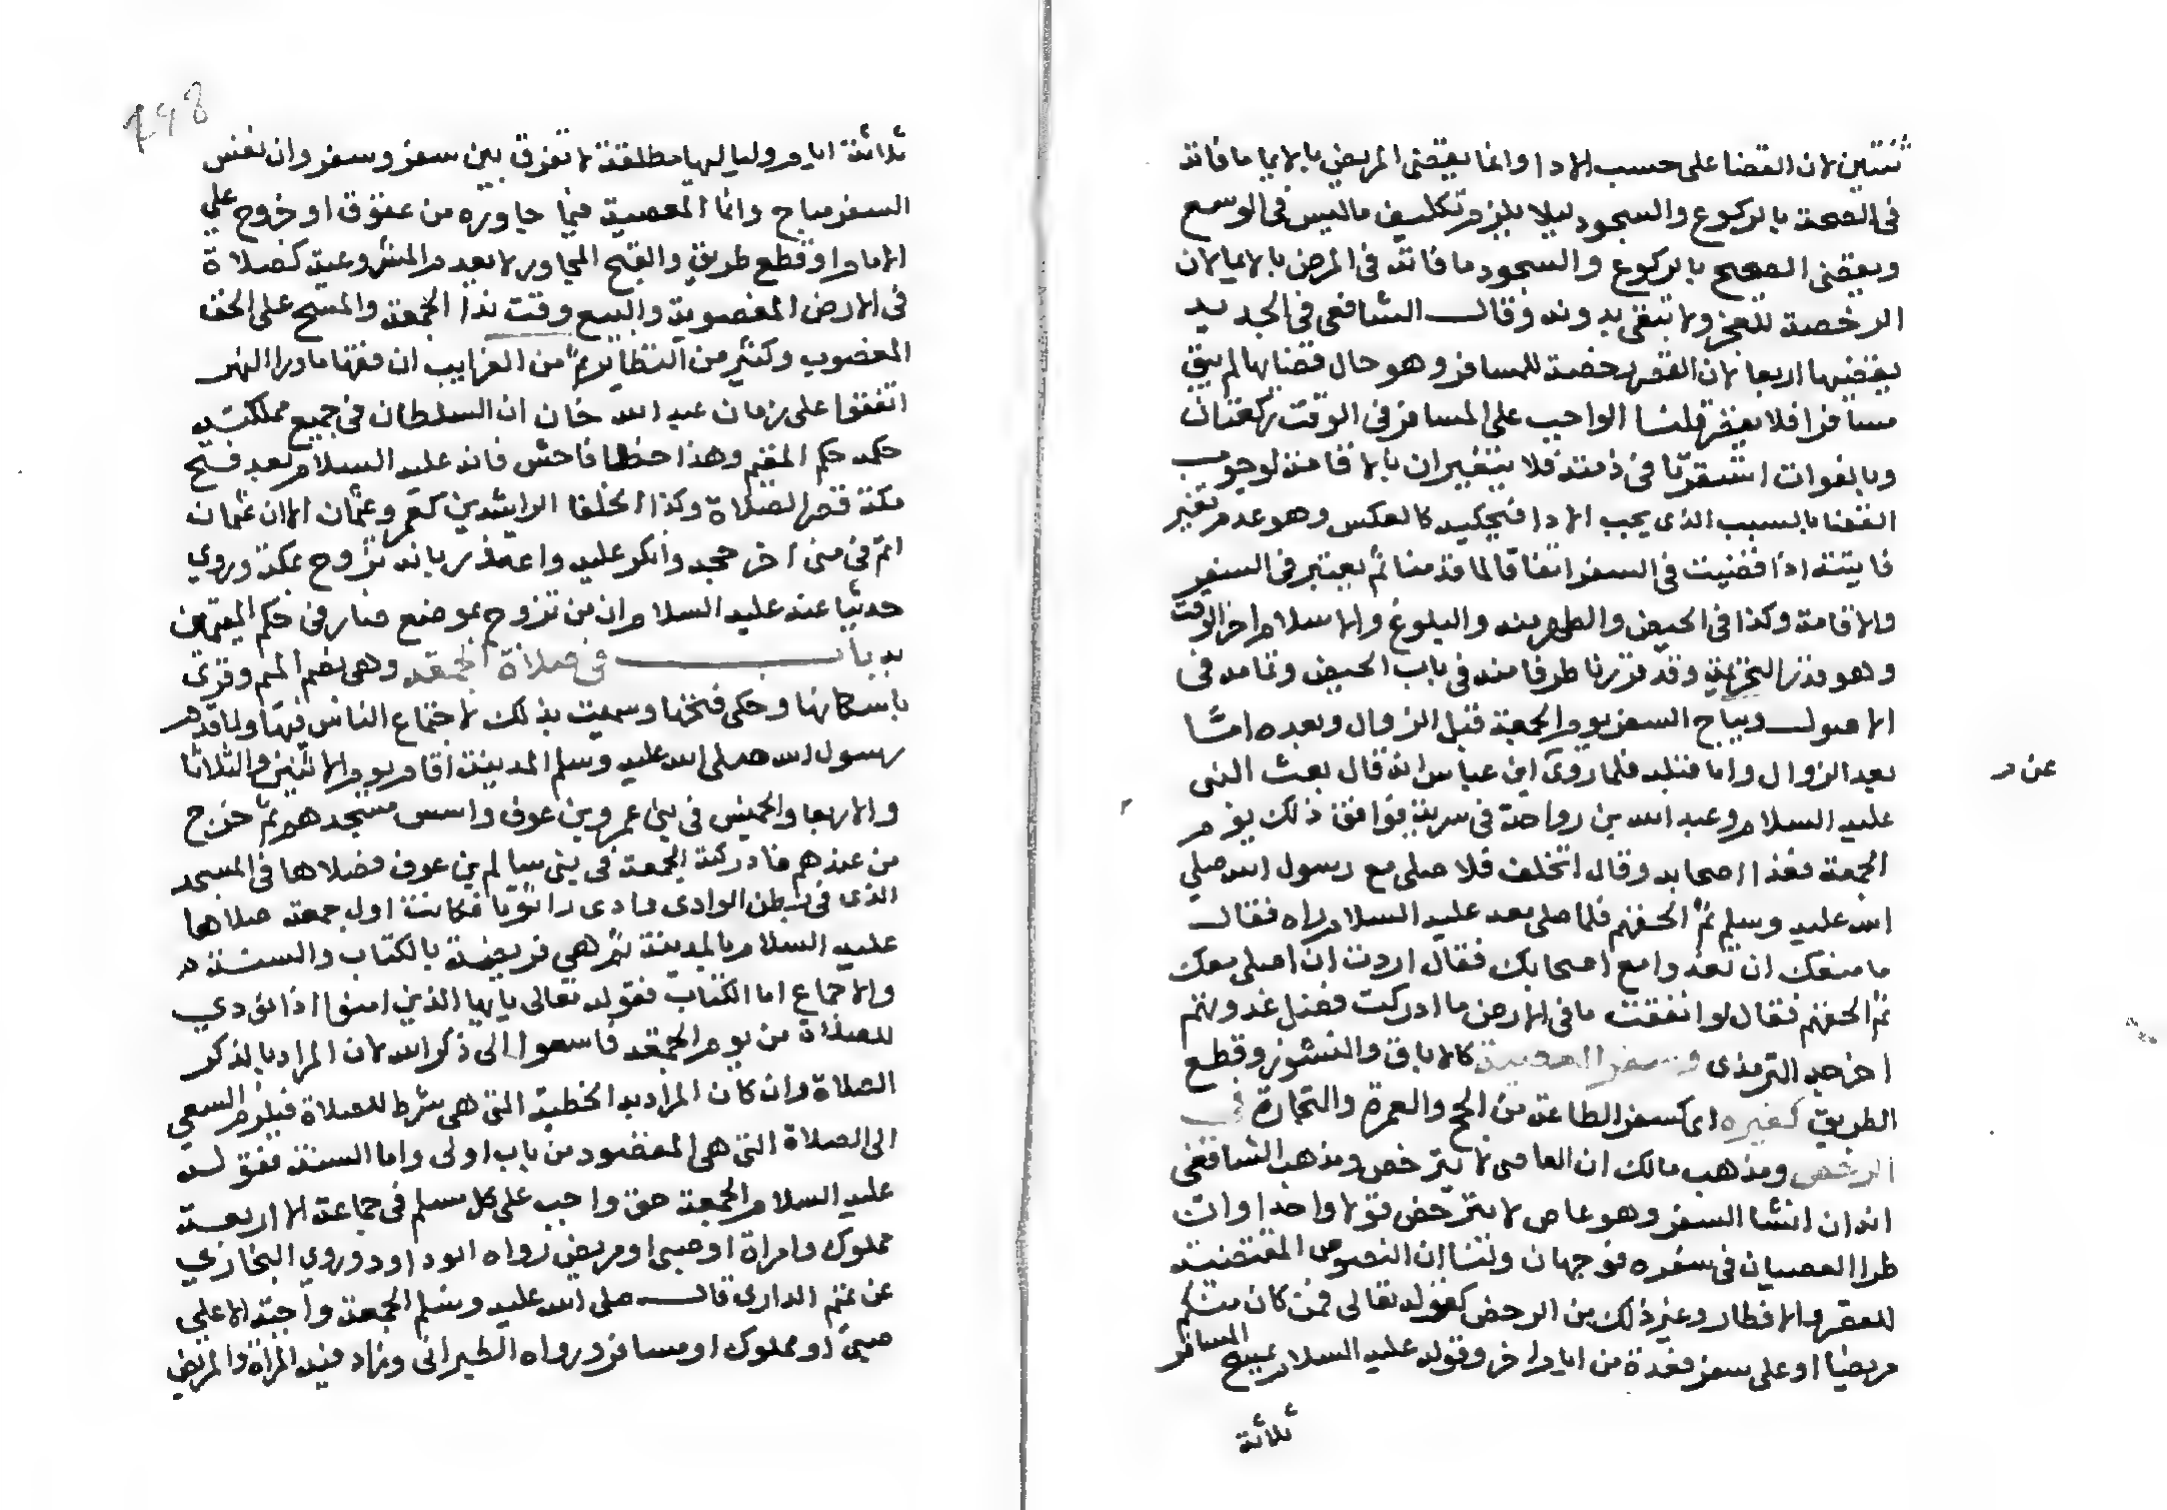 ثنتين لان القضا على حسب الادا وانما يقضى المريض بالايما ما فاته
فى الصحة بالركوع والسجود ليلا يلزم تكليف ما ليس فى الوسع
ويقضى الصحيح بالركوع والسجود ما فاته فى المرض بالايما لان
الرخصة للعجز ولا تبقى بدونه وقال الشافعى فى الجديد
يقضيها اربعا لان القصر رخصة للمسافر وهو حال قضايها لم يبق
مسافرا فلا يقصر قلنا الواجب على المسافر فى الوقت ركعتان
وبالفوات استقرتا فى ذمته فلا يتغيران بالاقامة لوجوب
القضا بالسبب الذى يجب الادا فيحكيه كالعكس وهو عدم تغير
فايتة اذا قضيت فى السفر اتفاقا لما قدمنا ثم يعتبر فى السفر
والاقامة وكذا فى الحيض والطهر منه والبلوغ والاسلام اخر الوقت
وهو قدر التحريمة وقد قررنا طرفا منه فى باب الحيض وتمامه فى
الاصول ويباح السفر يوم الجمعة قبل الزوال وبعده اما
بعد الزوال واما قبله فلما روى ابن عباس انه قال بعث النبى
عن م
عليه السلام وعبد الله بن رواحة فى سرية فوافق ذلك يوم
الجمعة فغدا اصحابه وقال اتخلف فلا صلى مع رسول الله صلي
الله عليه وسلم ثم الحقهم فلما صلى بعد عليه السلام راه فقال
ما منعك ان تغدوا مع اصحابك فقال اردت ان اصلى معك
ثم الحقهم فقال لو انفقت ما فى الارض ما ادركت فضل غدوتهم
اخرجه الترمذى وسفر المعصية كالاباق والنشوز وقطع
الطريق كغيره اى كسفر الطاعة من الحج والعمرة والتجارة فى
الرخص ومذهب مالك ان العاصى لا يترخص ومذهب الشافعى
انه ان انشا السفر وهو عاص لا يترخص قولا واحدا وان
طرا العصيان فى سفره فوجهان ولنا ان النصوص المقتضية
للقصر والافطار وغير ذلك من الرخص كقوله تعالى فمن كان منكم
مريضا او على سفر فعدة من ايام اخر وقوله عليه السلام يمسح المسافر
ثلاثة
198
ثلاثة ايام ولياليها مطلقة لا تفرق بين سفر وسفر وان نفس
السفر مباح وانما المعصية فيما جاوره من عقوق او خروج علي
الامام او قطع طريق والقبح المجاور لا يعدم المشروعية كصلاة
فى الارض المغصوبة والبيع وقت ندا الجمعة والمسح على الخف
المغصوب وكثير من النظاير ثم من الغرايب ان فقها ماورا النهر
اتفقوا على زمان عبد الله خان ان السلطان فى جميع مملكته
حكمه حكم المقيم وهذا خطا فاحش فانه عليه السلام بعد فتح
مكة قصر الصلاة وكذا الخلفا الراشدين كعمر وعثمان الا ان عثمان
اتم فى منى اخر حجه وانكر عليه واعتذر بانه تزوج بمكة وروي
حديثا عنه عليه السلام ان من تزوج بموضع صار فى حكم المقيمين
به باب فى صلاة الجمعة وهى بضم الميم وقرى
باسكانها وحكى فتحها وسميت بذلك لاجتماع الناس فيها ولما قدم
رسول الله صلى الله عليه وسلم المدينة اقام يوم الاثنين والثلاثا
والاربعا والخميس فى بنى عمرو بن عوف واسس مسجدهم ثم خرج
من عندهم فادركته الجمعة فى بنى سالم بن عوف فصلاها فى المسجد
الذى فى بطن الوادى وادى رانونا فكانت اول جمعة صلاها
عليه السلام بالمدينة ثم هي فريضة بالكتاب والسنة م
والاجماع اما الكتاب فقوله تعالى يايها الذين امنوا اذا نودي
للصلاة من يوم الجمعة فاسعوا الى ذكر الله لان المراد بالذكر
الصلاة وان كان المراد به الخطبة التى هى شرط للصلاة فيلزم السعي
الى الصلاة التى هى المقصود من باب اولى واما السنة فقوله
عليه السلام الجمعة حق واجب على كل مسلم فى جماعة الا اربعة
مملوك وامراة او صبى او مريض رواه ابوداود وروي البخاري
عن تميم الدارى قال صلى الله عليه وسلم الجمعة واجبة الا علي
صبى او مملوك او مسافر ورواه الطبرانى وزاد فيه المراة والمريض